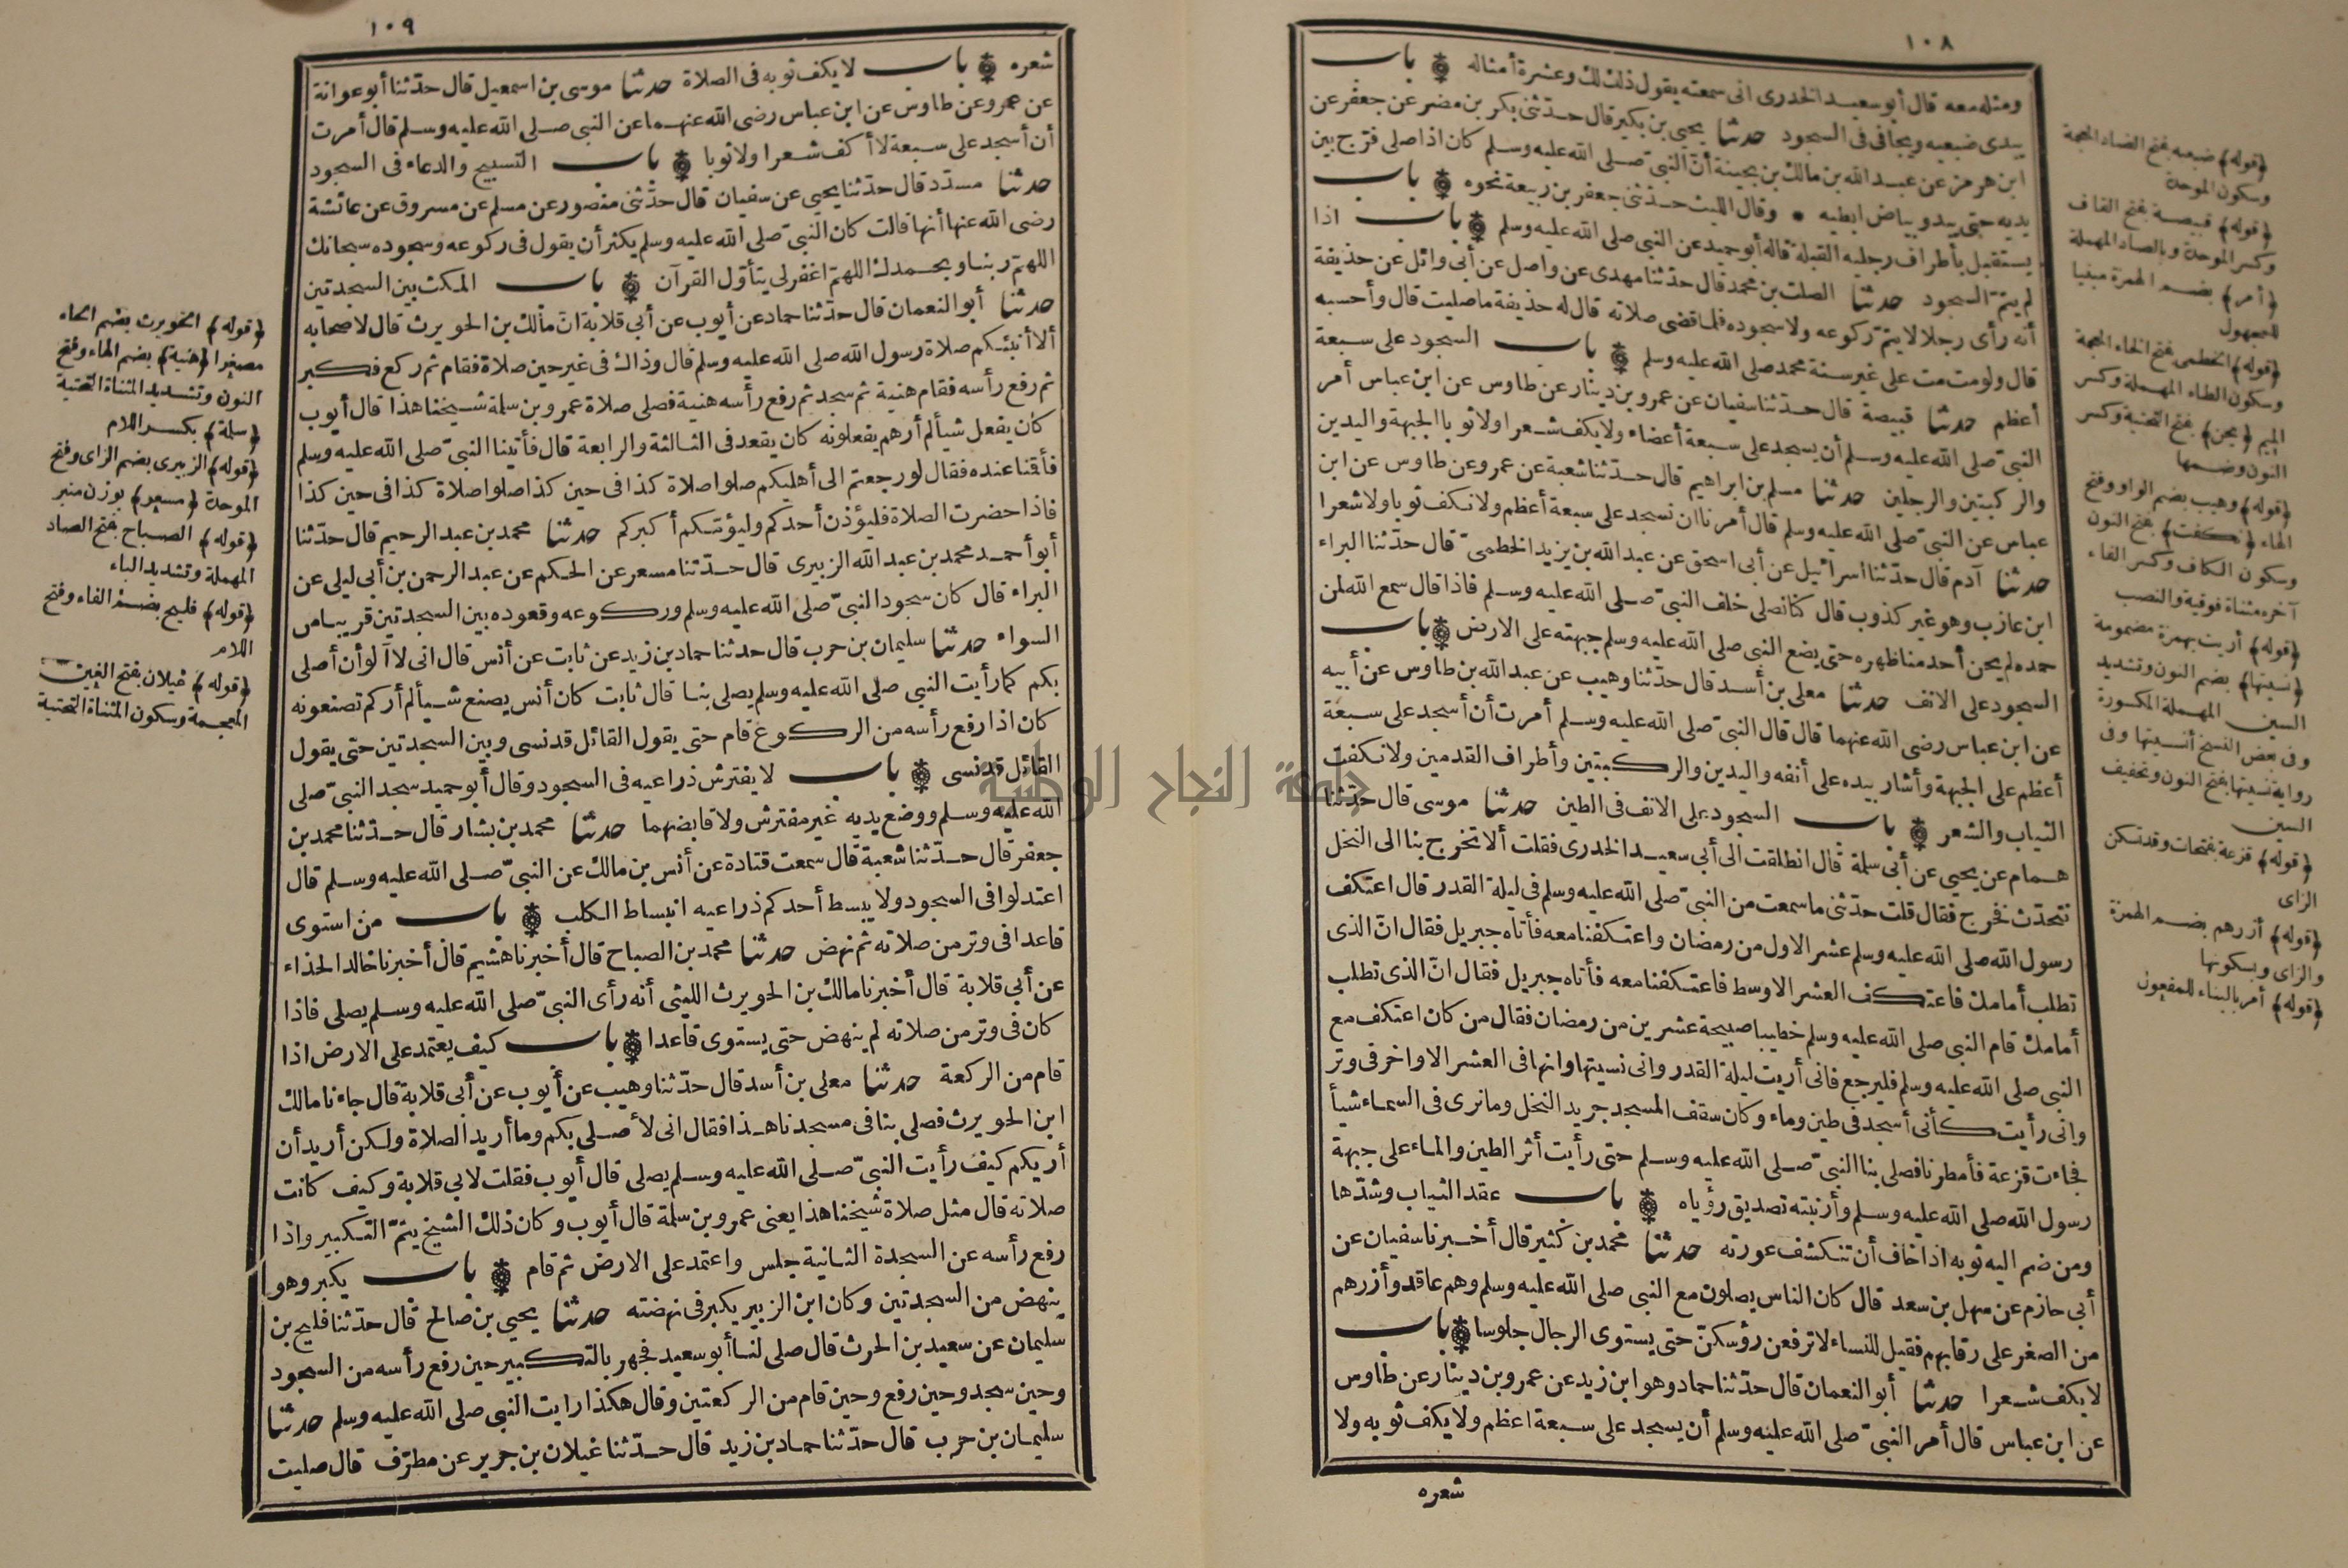 ١٠٨
ومثله معه قال أبو سعيد الخدرى انى سمعته يقول ذلك لك وعشرة أمثاله باب
يبدى ضبعيه ويجافى فى السجود حدثنا يحيى بن بكير قال حدثنى بكر بن مضر عن جعفر عن
ابن هرمز عن عبد الله بن مالك بن بحينة أن النبىّ صلى الله عليه وسلم كان اذا صلى فرّج بين
يديه حتى يبدو بياض ابطيه * وقال الليث حدثنى جعفر بن ربيعة نحوه باب
يستقبل بأطراف رجليه القبلة قاله أبو حميد عن النبى صلى الله عليه وسلم باب اذا
لم يتمّ السجود حدثنا الصلت بن محمد قال حدثنا مهدى عن واصل عن أبى وائل عن حذيفة
أنه رأى رجلا لا يتمّ ركوعه ولا سجوده فلما قضى صلاته قال له حذيفة ما صليت قال وأحسبه
قال ولو مت مت على غير سنة محمد صلى الله عليه وسلم باب السجود على سبعة
أعظم حدثنا قبيصة قال حدثنا سفيان عن عمرو بن دينار عن طاوس عن ابن عباس أمر
النبىّ صلى الله عليه وسلم أن يسجد على سبعة أعضاء ولا يكف شعرا ولا ثوبا الجبهة واليدين
والركبتين والرجلين حدثنا مسلم بن ابراهيم قال حدثنا شعبة عن عمرو عن طاوس عن ابن
عباس عن النبىّ صلى الله عليه وسلم قال أمرنا ان نسجد على سبعة أعظم ولا نكف ثوبا ولا شعرا
حدثنا آدم قال حدّثنا اسرائيل عن أبى اسحق عن عبد الله بن يزيد الخطمىّ قال حدّثنا البراء
ابن عازب وهو غير كذوب قال كنا نصلى خلف النبىّ صلى الله عليه وسلم فاذا قال سمع الله لمن
حمده لم يحن أحد منا ظهره حتى يضع النبى صلى الله عليه وسلم جبهته على الارض باب
السجود على الانف حدثنا معلى بن أسد قال حدّثنا وهيب عن عبد الله بن طاوس عن أبيه
عن ابن عباس رضى الله عنهما قال قال النبىّ صلى الله عليه وسلم أمرت أن أسجد على سبعة
أعظم على الجبهة وأشار بيده على أنفه واليدين والركبتين وأطراف القدمين ولا نكفت
الثياب والشعر باب السجود على الانف فى الطين حدثنا موسى قال حدّثنا
همام عن يحيى عن أبى سلمة قال انطلقت الى أبى سعيد الخدرى فقلت ألا تخرج بنا الى النخل
نتحدّث فخرج فقال قلت حدّثنى ما سمعت من النبىّ صلى الله عليه وسلم فى ليلة القدر قال اعتكف
رسول الله صلى الله عليه وسلم عشر الاول من رمضان واعتكفنا معه فأتاه جبريل فقال انّ الذى
تطلب أمامك فاعتكف العشر الاوسط فاعتكفنا معه فأتاه جبريل فقال انّ الذى تطلب
أمامك قام النبى صلى الله عليه وسلم خطيبا صبيحة عشرين من رمضان فقال من كان اعتكف مع
النبى صلى الله عليه وسلم فليرجع فانى أريت ليلة القدر وانى نسيتها وانها فى العشر الاواخر فى وتر
وانى رأيت كأنى أسجد فى طين وماء وكان سقف المسجد جريد النخل وما نرى فى السماء شيأ
فجاءت قزعة فأمطرنا فصلى بنا النبىّ صلى الله عليه وسلم حتى رأيت أثر الطين والماء على جبهة
رسول الله صلى الله عليه وسلم وأرنبته تصديق رؤياه باب عقد الثياب وشدّها
ومن ضم اليه ثوبه اذا خاف أن تنكشف عورته حدثنا محمد بن كثير قال أخبرنا سفيان عن
أبى حازم عن سهل بن سعد قال كان الناس يصلون مع النبى صلى الله عليه وسلم وهم عاقدو أزرهم
من الصغر على رقابهم فقيل للنساء لا ترفعن رؤسكنّ حتى يستوى الرجال جلوسا باب
لا يكف شعرا حدثنا أبو النعمان قال حدّثنا حماد وهو ابن زيد عن عمرو بن دينار عن طاوس
عن ابن عباس قال أمر النبىّ صلى الله عليه وسلم أن يسجد على سبعة اعظم ولا يكف ثوبه ولا
شعره
(قوله) ضبعيه بفتح الضاد المعجمة
وسكون الموحدة
(قوله) قبيصة بفتح القاف
وكسر الموحدة وبالصاد المهملة
(أمر) بضم الهمزة مبنيا
للمجهول
(قوله) الخطمى بفتح الخاء المعجمة
وسكون الطاء المهملة وكسر
الميم (يحن) بفتح التحتية وكسر
النون وضمها
(قوله) وهيب بضم الواو وفتح
الهاء (نكفت) بفتح النون
وسكون الكاف وكسر الفاء
آخره مثناة فوقية والنصب
(قوله) أريت بهمزة مضمومة
(نسيتها) بضم النون وتشديد
السين المهملة المكسورة
وفى بعض النسخ أنسيتها وفى
رواية نسيتها بفتح النون وتخفيف
السين
(قوله) قزعة بفتحات وقد تسكن
الزاى
(قوله) أزرهم بضم الهمزة
والزاى وبسكونها
(قوله) أمر بالبناء للمفعول
١٠٩
شعره باب لا يكف ثوبه فى الصلاة حدثنا موسى بن اسمعيل قال حدّثنا أبو عوانة
عن عمرو عن طاوس عن ابن عباس رضى الله عنهما عن النبى صلى الله عليه وسلم قال أمرت
أن أسجد على سبعة لا أكف شعرا ولا ثوبا باب التسبيح والدعاء فى السجود
حدثنا مسدّد قال حدّثنا يحيى عن سفيان قال حدّثنى منصور عن مسلم عن مسروق عن عائشة
رضى الله عنها أنها قالت كان النبىّ صلى الله عليه وسلم يكثر أن يقول فى ركوعه وسجوده سبحانك
اللهمّ ربنا وبحمدك اللهمّ اغفر لى يتأوّل القرآن باب المكث بين السجدتين
حدثنا أبو النعمان قال حدّثنا حماد عن أيوب عن أبى قلابة انّ مالك بن الحويرث قال لاصحابه
ألا أنبئكم صلاة رسول الله صلى الله عليه وسلم قال وذاك فى غير حين صلاة فقام ثم ركع فكبر
ثم رفع رأسه فقام هنية ثم سجد ثم رفع رأسه هنية فصلى صلاة عمرو بن سلمة شيخنا هذا قال أيوب
كان يفعل شيأ لم أرهم يفعلونه كان يقعد فى الثالثة والرابعة قال فأتينا النبىّ صلى الله عليه وسلم
فأقنا عنده فقال لو رجعتم الى أهليكم صلوا صلاة كذا فى حين كذا صلوا صلاة كذا فى حين كذا
فاذا حضرت الصلاة فليؤذن أحدكم وليؤمّكم أكبركم حدثنا محمد بن عبد الرحيم قال حدّثنا
أبو أحمد محمد بن عبد الله الزبيرى قال حدّثنا مسعر عن الحكم عن عبد الرحمن بن أبى ليلى عن
البراء قال كان سجود النبىّ صلى الله عليه وسلم وركوعه وقعوده بين السجدتين قريبا من
السواء حدثنا سليمان بن حرب قال حدثنا حماد بن زيد عن ثابت عن أنس قال انى لا آلو أن أصلى
بكم كما رأيت النبى صلى الله عليه وسلم يصلى بنا قال ثابت كان أنس يصنع شيأ لم أركم تصنعونه
كان اذا رفع رأسه من الركوع قام حتى يقول القائل قد نسى وبين السجدتين حتى يقول
القائل قد نسى باب لا يفترش ذراعيه فى السجود وقال أبو حميد سجد النبىّ صلى
الله عليه وسلم ووضع يديه غير مفترش ولا قابضهما حدثنا محمد بن بشار قال حدّثنا محمد بن
جعفر قال حدّثنا شعبة قال سمعت قتادة عن أنس بن مالك عن النبىّ صلى الله عليه وسلم قال
اعتدلوا فى السجود ولا يبسط أحدكم ذراعيه انبساط الكلب باب من استوى
قاعدا فى وتر من صلاته ثم نهض حدثنا محمد بن الصباح قال أخبرنا هشيم قال أخبرنا خالد الحذاء
عن أبى قلابة قال أخبرنا مالك بن الحويرث الليثى أنه رأى النبىّ صلى الله عليه وسلم يصلى فاذا
كان فى وتر من صلاته لم ينهض حتى يستوى قاعدا باب كيف يعتمد على الارض اذا
قام من الركعة حدثنا معلى بن أسد قال حدّثنا وهيب عن أيوب عن أبى قلابة قال جاءنا مالك
ابن الحويرث فصلى بنا فى مسجدنا هذا فقال انى لأصلى بكم وما أريد الصلاة ولكن أريد أن
أريكم كيف رأيت النبىّ صلى الله عليه وسلم يصلى قال أيوب فقلت لابى قلابة وكيف كانت
صلاته قال مثل صلاة شيخنا هذا يعنى عمرو بن سلمة قال أيوب وكان ذلك الشيخ يتمّ التكبير واذا
رفع رأسه عن السجدة الثانية جلس واعتمد على الارض ثم قام باب يكبر وهو
ينهض من السجدتين وكان ابن الزبير يكبر فى نهضته حدثنا يحيى بن صالح قال حدّثنا فليح بن
سليمان عن سعيد بن الحرث قال صلى لنا أبو سعيد فجهر بالتكبير حين رفع رأسه من السجود
وحين سجد وحين رفع وحين قام من الركعتين وقال هكذا رايت النبى صلى الله عليه وسلم حدثنا
سليمان بن حرب قال حدّثنا حماد بن زيد قال حدّثنا غيلان بن جرير عن مطرّف قال صليت
(قوله) الحويرث بضم الحاء
مصغرا (هنية) بضم الهاء وفتح
النون وتشديد المثناة التحتية
(سلمة) بكسر اللام
(قوله) الزبيرى بضم الزاى وفتح
الموحدة (مسعر) بوزن منبر
(قوله) الصباح بفتح الصاد
المهملة وتشديد الباء
(قوله) فليح بضم الفاء وفتح
اللام
(قوله) غيلان بفتح الغين
المعجمة وسكون المثناة التحتية
جامعة النجاح الوطنية